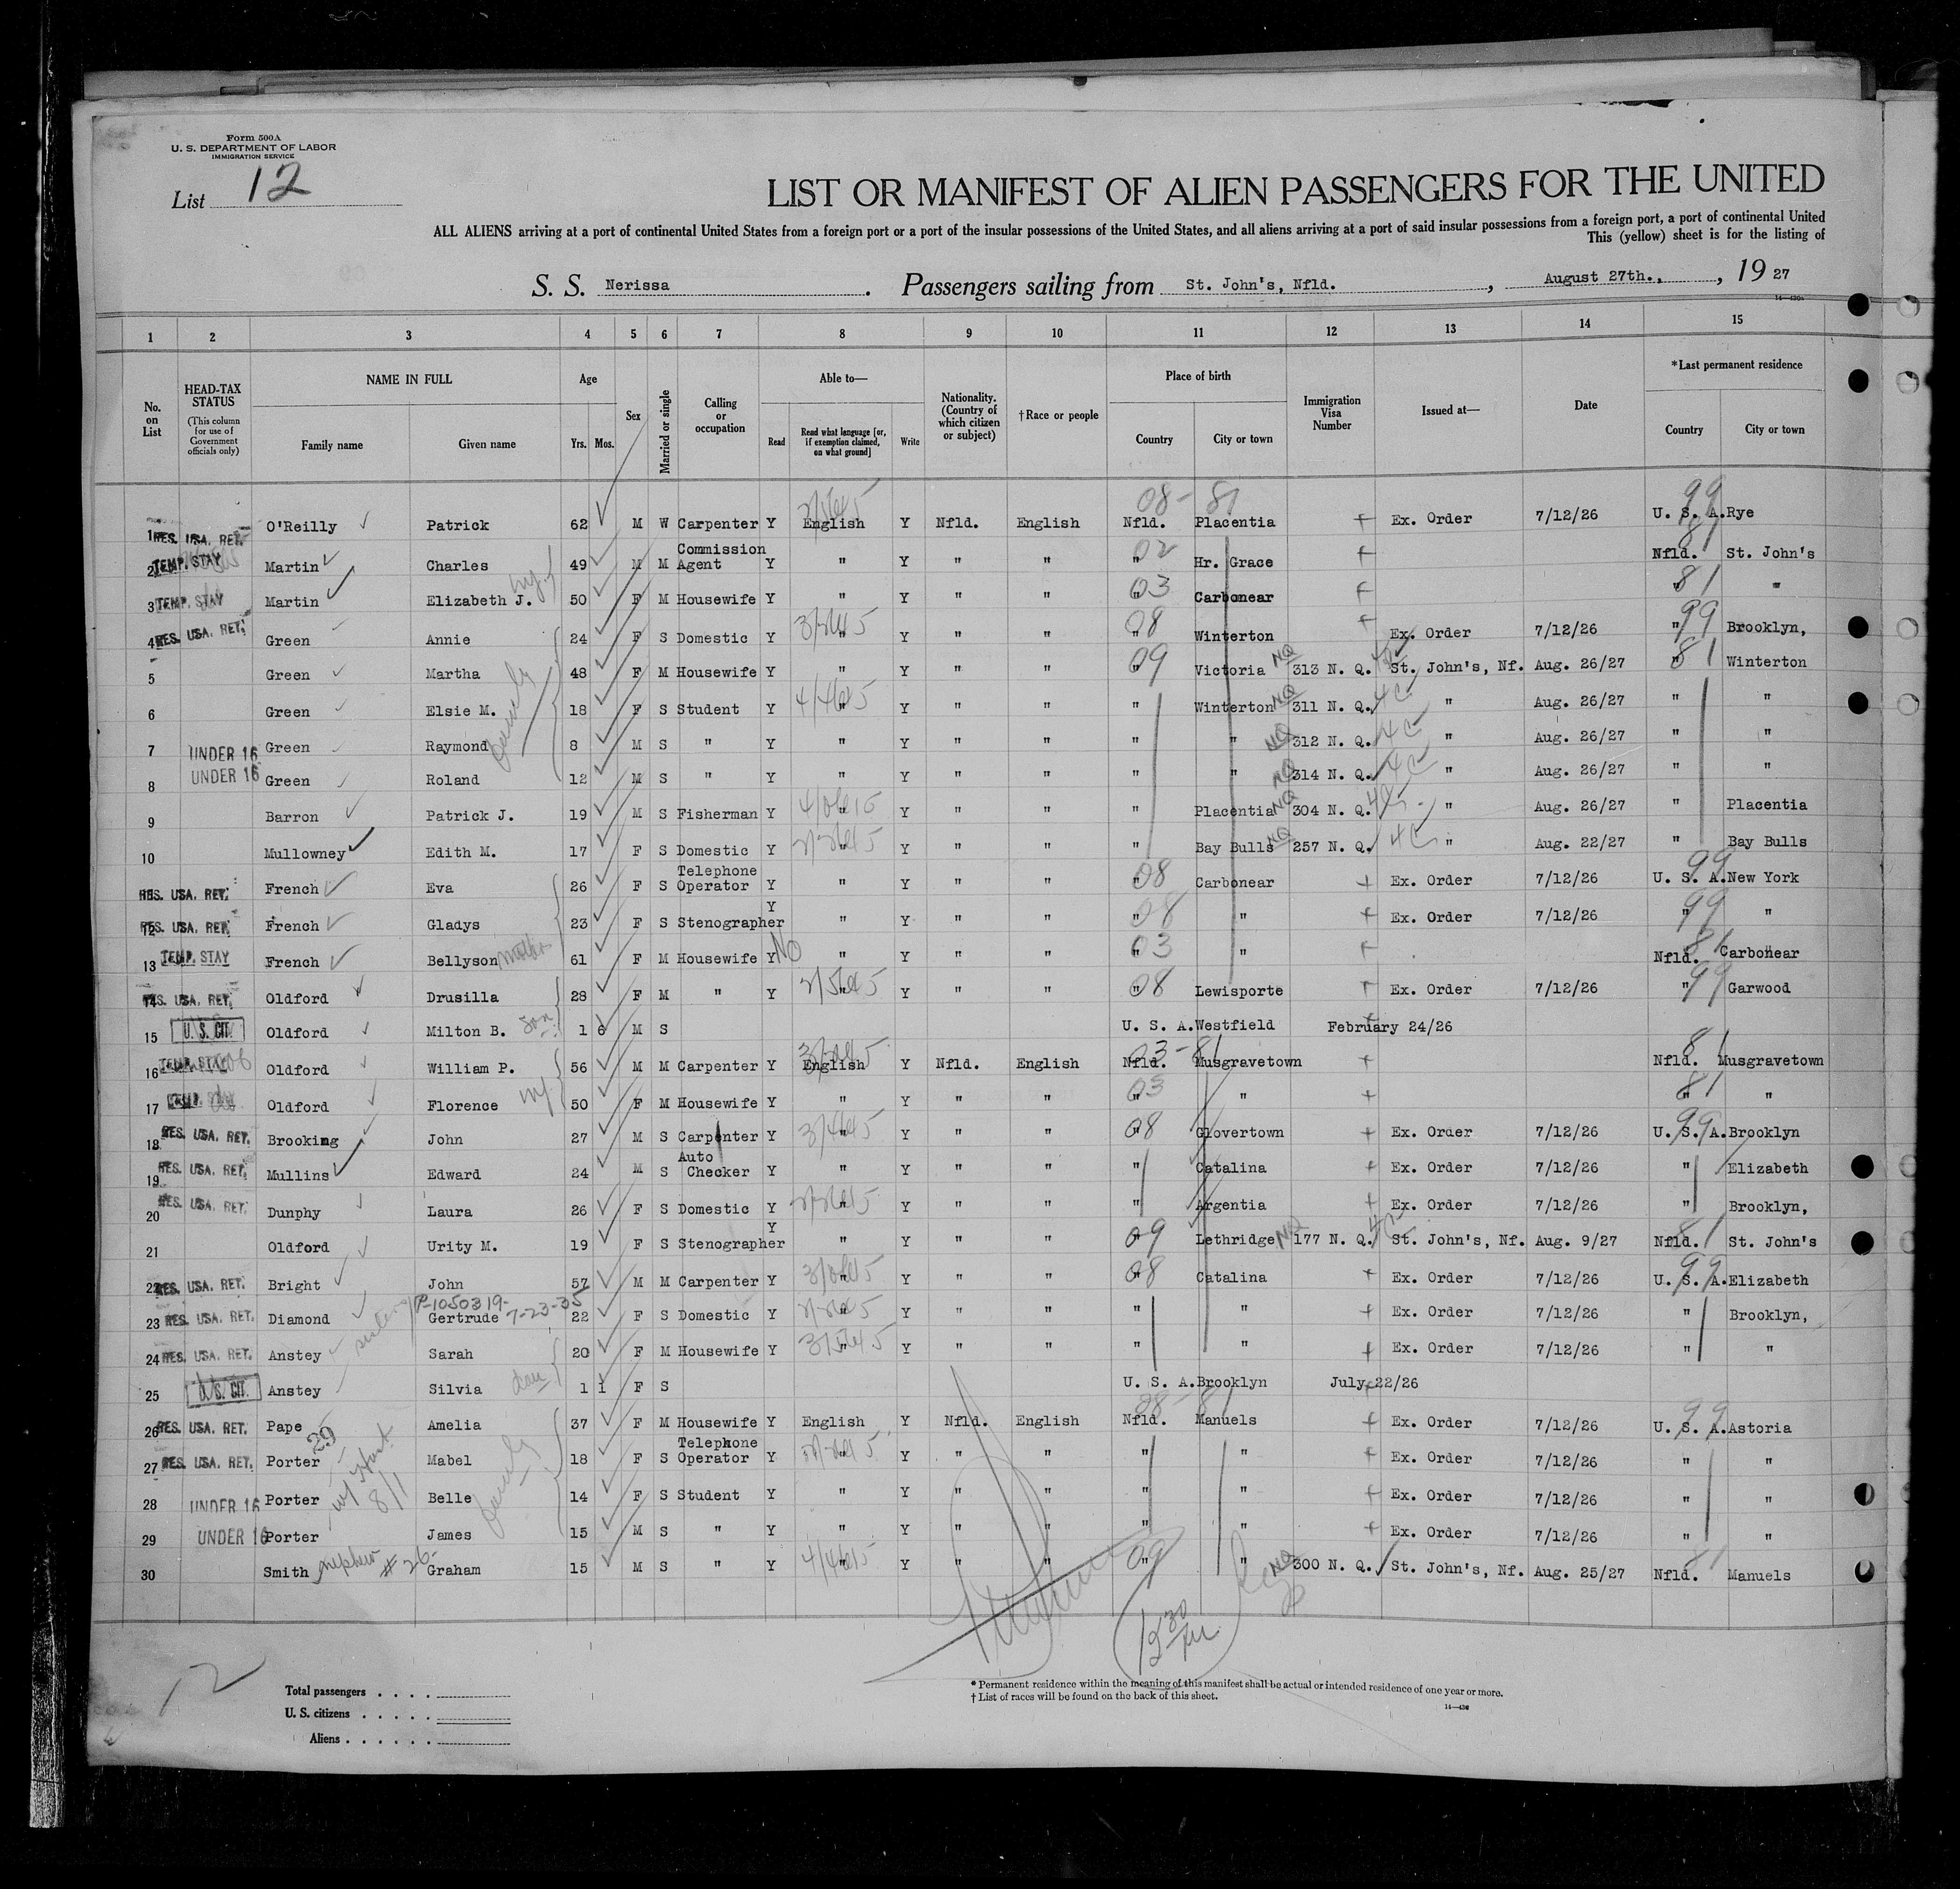 Form 500A
U. S. DEPARTMENT OF LABOR
IMMIGRATION SERVICE
List 12
LIST OR MANIFEST OF ALIEN PASSENGERS FOR THE UNITED
ALL ALIENS arriving at a port of continental United States from a foreign port or a port of the insular possessions of the United States, and all aliens arriving at a port of said insular possessions from a foreign port, a port of continental United
This (yellow) sheet is for the listing of
S. S. Nerissa . Passengers sailing from St. John's, Nfld. , August 27th., , 19 27
1 2 3 4 5 6 7 8 9 10 11 12 13 14 15
No. on List
HEAD-TAX STATUS (This column for use of Government officials only)
NAME IN FULL Family name Given name
Age Yrs. Mos.
Sex
Married or single
Calling or occupation
Able to— Read Read what language [or, if exemption claimed, on what ground] Write
Nationality. (Country of which citizen or subject)
†Race or people
Place of birth Country City or town
Immigration Visa Number
Issued at—
Date
*Last permanent residence Country City or town
1 RES. USA. RET. O'Reilly Patrick 62 M W Carpenter Y English Y Nfld. English Nfld. Placentia Ex. Order 7/12/26 U. S. A. Rye 08 - 81 99
2 TEMP. STAY Martin Charles 49 M M Commission Agent Y " Y " " " Hr. Grace Nfld. St. John's 02 81
3 TEMP. STAY Martin Elizabeth J. 50 F M Housewife Y " Y " " " Carbonear " " 03 81
4 RES. USA. RET. Green Annie 24 F S Domestic Y " Y " " " Winterton Ex. Order 7/12/26 " Brooklyn, 08 99
5 Green Martha 48 F M Housewife Y " Y " " " Victoria NQ 313 N. Q. St. John's, Nf. Aug. 26/27 " Winterton 09 81
6 Green Elsie M. 18 F S Student Y " Y " " " Winterton NQ 311 N. Q. 4C " Aug. 26/27 " "
7 UNDER 16 Green Raymond 8 M S " Y " Y " " " " NQ 312 N. Q. 4C " Aug. 26/27 " "
8 UNDER 16 Green Roland 12 M S " Y " Y " " " " NQ 314 N. Q. 4C " Aug. 26/27 " "
family
9 Barron Patrick J. 19 M S Fisherman Y " Y " " " Placentia NQ 304 N. Q. " Aug. 26/27 " Placentia
10 Mullowney Edith M. 17 F S Domestic Y " Y " " " Bay Bulls NQ 257 N. Q. 4C " Aug. 22/27 " Bay Bulls
RES. USA. RET. French Eva 26 F S Telephone Operator Y " Y " " " Carbonear Ex. Order 7/12/26 U. S. A. New York 08 99
12 RES. USA. RET. French Gladys 23 F S Stenographer Y " Y " " " " Ex. Order 7/12/26 " " 08 99
13 TEMP. STAY French Bellyson mother 61 F M Housewife Y No " Y " " " " Nfld. Carbonear 03 81
14 RES. USA. RET. Oldford Drusilla 28 F M " Y " Y " " " Lewisporte Ex. Order 7/12/26 " Garwood 08 99
15 U. S. CIT. Oldford Milton B. son 1 6 M S U. S. A. Westfield February 24/26
16 TEMP. STAY Oldford William P. 56 M M Carpenter Y English Y Nfld. English Nfld. Musgravetown Nfld. Musgravetown 03 - 81 81
17 TEMP. STAY Oldford Florence 50 F M Housewife Y " Y " " " " " " 03 81
18 RES. USA. RET. Brooking John 27 M S Carpenter Y " Y " " " Glovertown Ex. Order 7/12/26 U. S. A. Brooklyn 08 99
19 RES. USA. RET. Mullins Edward 24 M S Auto Checker Y " Y " " " Catalina Ex. Order 7/12/26 " Elizabeth
20 RES. USA. RET. Dunphy Laura 26 F S Domestic Y " Y " " " Argentia Ex. Order 7/12/26 " Brooklyn,
21 Oldford Urity M. 19 F S Stenographer Y " Y " " " Lethridge NQ 177 N. Q. St. John's, Nf. Aug. 9/27 Nfld. St. John's 09 81
22 RES. USA. RET. Bright John 57 M M Carpenter Y " Y " " " Catalina Ex. Order 7/12/26 U. S. A. Elizabeth 08 99
P-1050319- 7-23-35
23 RES. USA. RET. Diamond Gertrude 22 F S Domestic Y " Y " " " " Ex. Order 7/12/26 " Brooklyn,
sisters
24 RES. USA. RET. Anstey Sarah 20 F M Housewife Y " Y " " " " Ex. Order 7/12/26 " "
25 U. S. CIT. Anstey Silvia dau 1 1 F S U. S. A. Brooklyn July 22/26
26 RES. USA. RET. Pape 39 Amelia 37 F M Housewife Y English Y Nfld. English Nfld. Manuels Ex. Order 7/12/26 U. S. A. Astoria 08 - 81 99
27 RES. USA. RET. Porter Mabel 18 F S Telephone Operator Y " Y " " " " Ex. Order 7/12/26 " "
28 UNDER 16 Porter Belle 14 F S Student Y " Y " " " " Ex. Order 7/12/26 " "
29 UNDER 16 Porter James 15 M S " Y " Y " " " " Ex. Order 7/12/26 " "
family
30 Smith nephew # 26- Graham 15 M S " Y " Y " " " " NQ 300 N. Q. St. John's, Nf. Aug. 25/27 Nfld. Manuels 09 81
12
Total passengers . . . .
U. S. citizens . . . . .
Aliens . . . . . .
* Permanent residence within the meaning of this manifest shall be actual or intended residence of one year or more.
† List of races will be found on the back of this sheet.